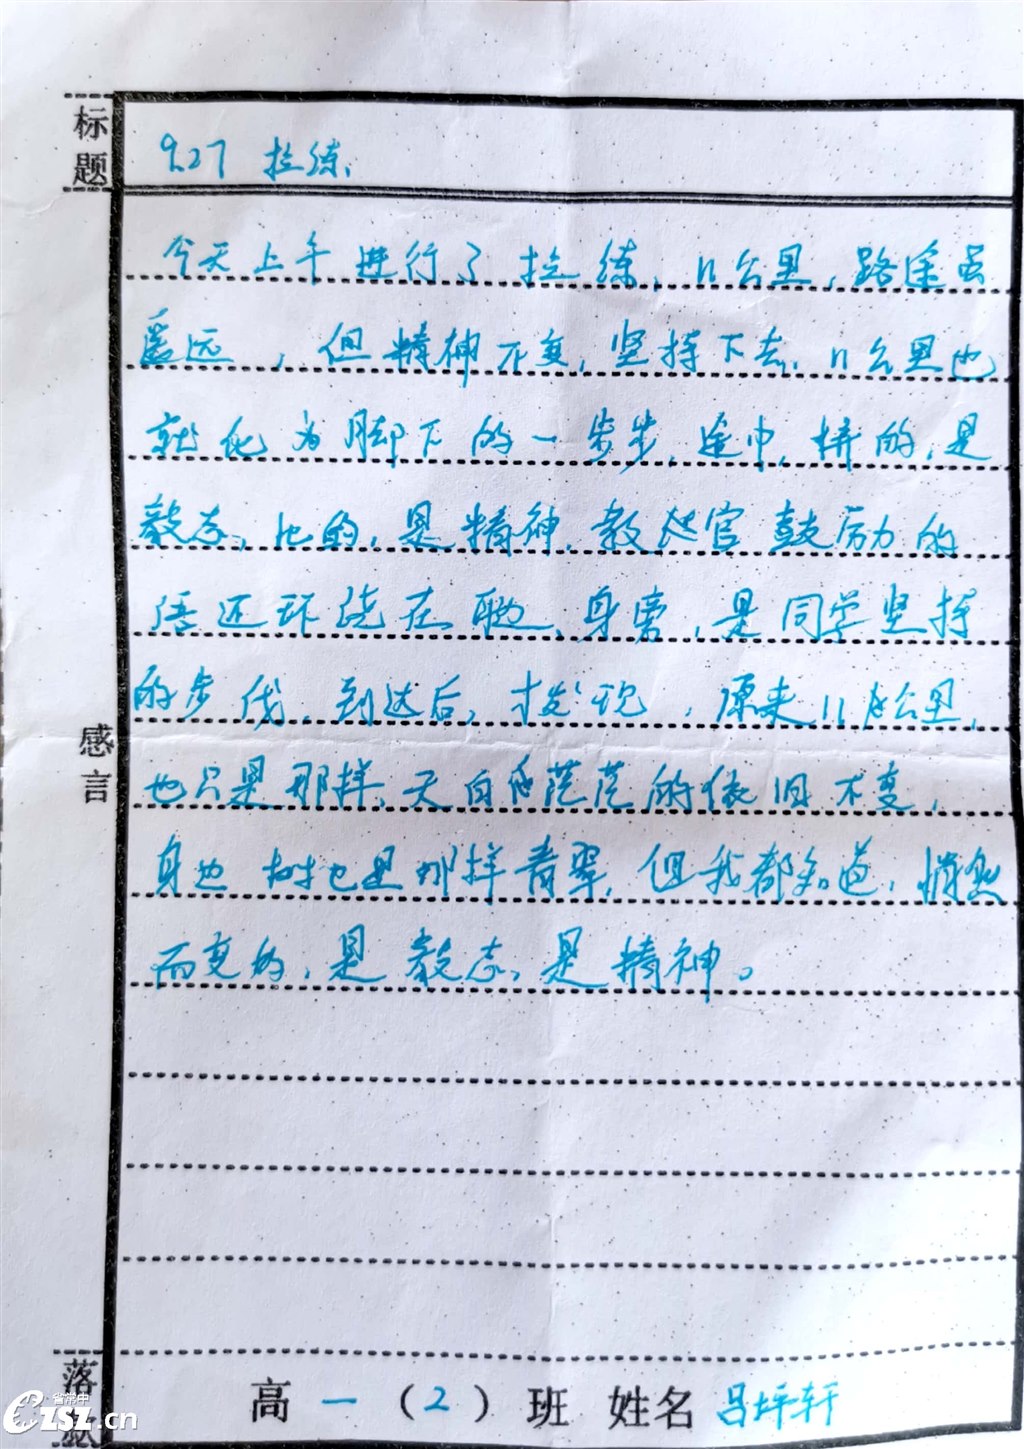 标题
9.27 拉练
今天上午进行了拉练,11公里,路途虽
遥远,但精神不变,坚持下去,11公里也
就化为脚下的一步步,途中,拼的,是
毅志,比的,是精神,教官鼓励的
语还环绕在耳边,身旁,是同学坚持
的步伐,到达后,才发现,原来11公里,
也只是那样,天白茫茫的依旧不变,
身边树也是那样青翠,但我都知道,悄然
而变的,是毅志,是精神。
感言
落款
高一(2)班 姓名 吕坪轩
省常中
czsz.cn